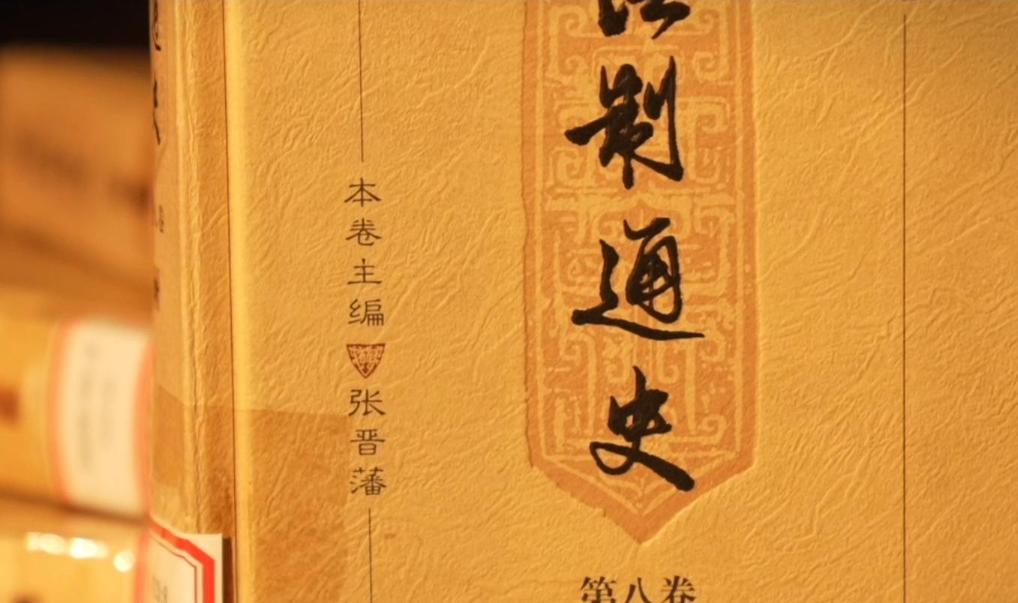 法制通史
本卷主编 张晋藩
第八卷